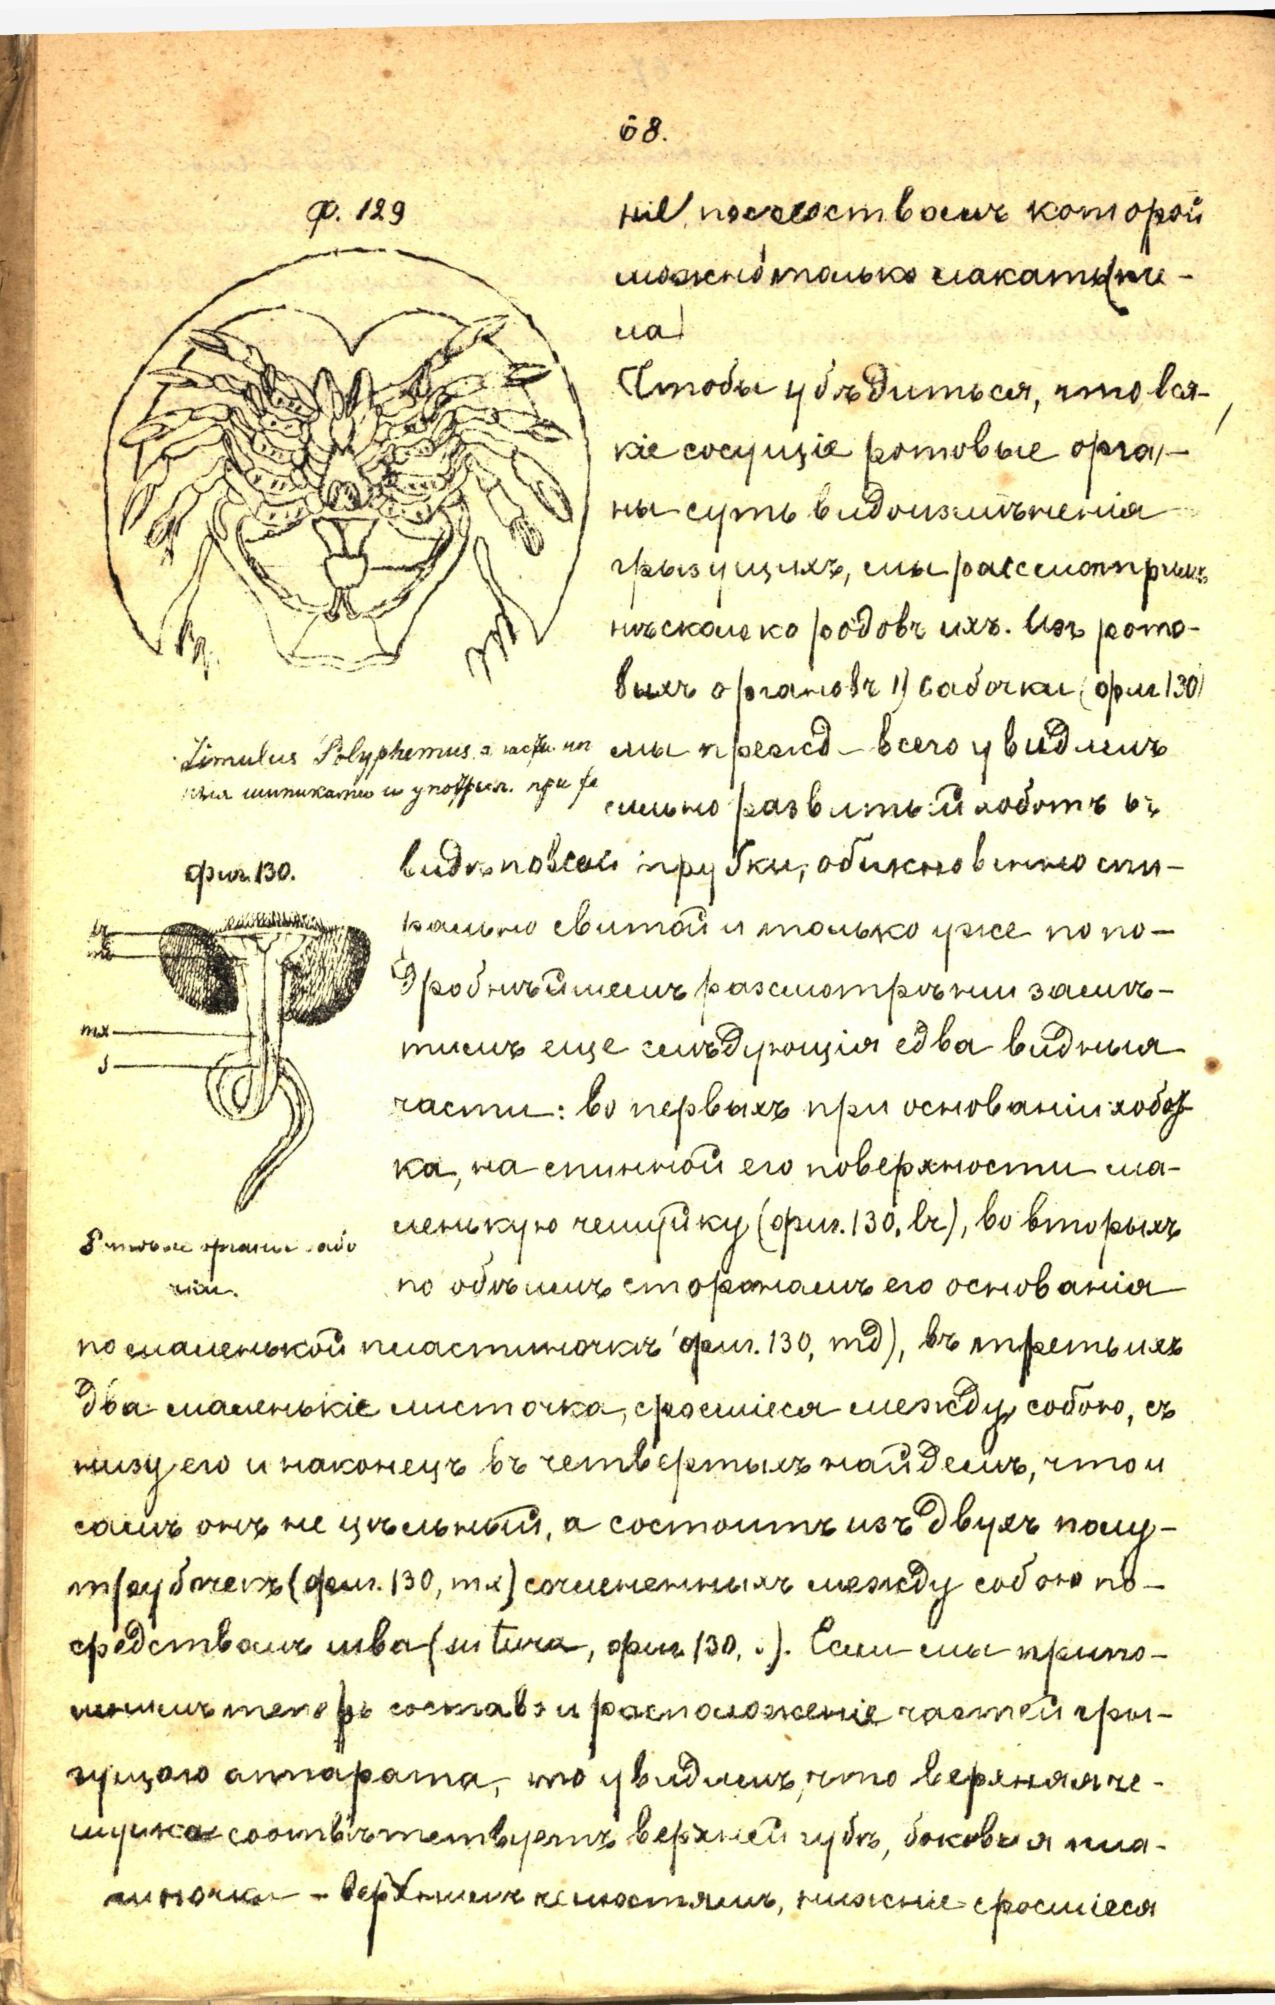 68.
Ф. 129
ніе посредствомъ которой
можно только лакать (пче-
ла)
Чтобы убѣдиться, что вся-
кіе сосущіе ротовые орга-
ны суть видоизмѣненія
грызущихъ, мы рассмотримъ
нѣсколько родовъ ихъ. Изъ рото-
выхъ органовъ 1) бабочки (фиг 130)
Limulus Polyphemus
шипиками и употребл. при
мы прежд- всего увидимъ
сильно развитый хоботъ въ
фиг. 130.
видѣ полой трубки, обикновенно спи-
рально свитой и только уже по по-
дробнѣйшемъ разсмотрѣніи замѣ-
тимъ еще слѣдующія едва видныя
части: во первыхъ при основаніи хобот-
ка, на спинной его поверхности ма-
ленькую чешуйку (фиг. 130, lr), во вторыхъ
по обѣимъ сторонамъ его основанія
lr
md
mx
s
Ротовые органы бабо
чки.
по маленькой пластиночкѣ (фиг. 130, md), въ третьихъ
два маленькіе листочка, сросшіеся между собою, съ
низу его и наконецъ въ четвертыхъ найдемъ, что и
самъ онъ не цѣльный, а состоитъ изъ двухъ полу-
трубочекъ (фиг. 130, mx) сочлененныхъ между собою по-
средствомъ шва (sutura, фиг. 130, s). Если мы припо-
мнимъ теперь составъ и расположеніе частей гры-
зущаго аппарата, то увидимъ, что верхняя че-
шуйка соотвѣтствуетъ верхней губѣ, боковыя пла-
тиночки - верхнимъ челюстямъ, нижніе сросшіеся